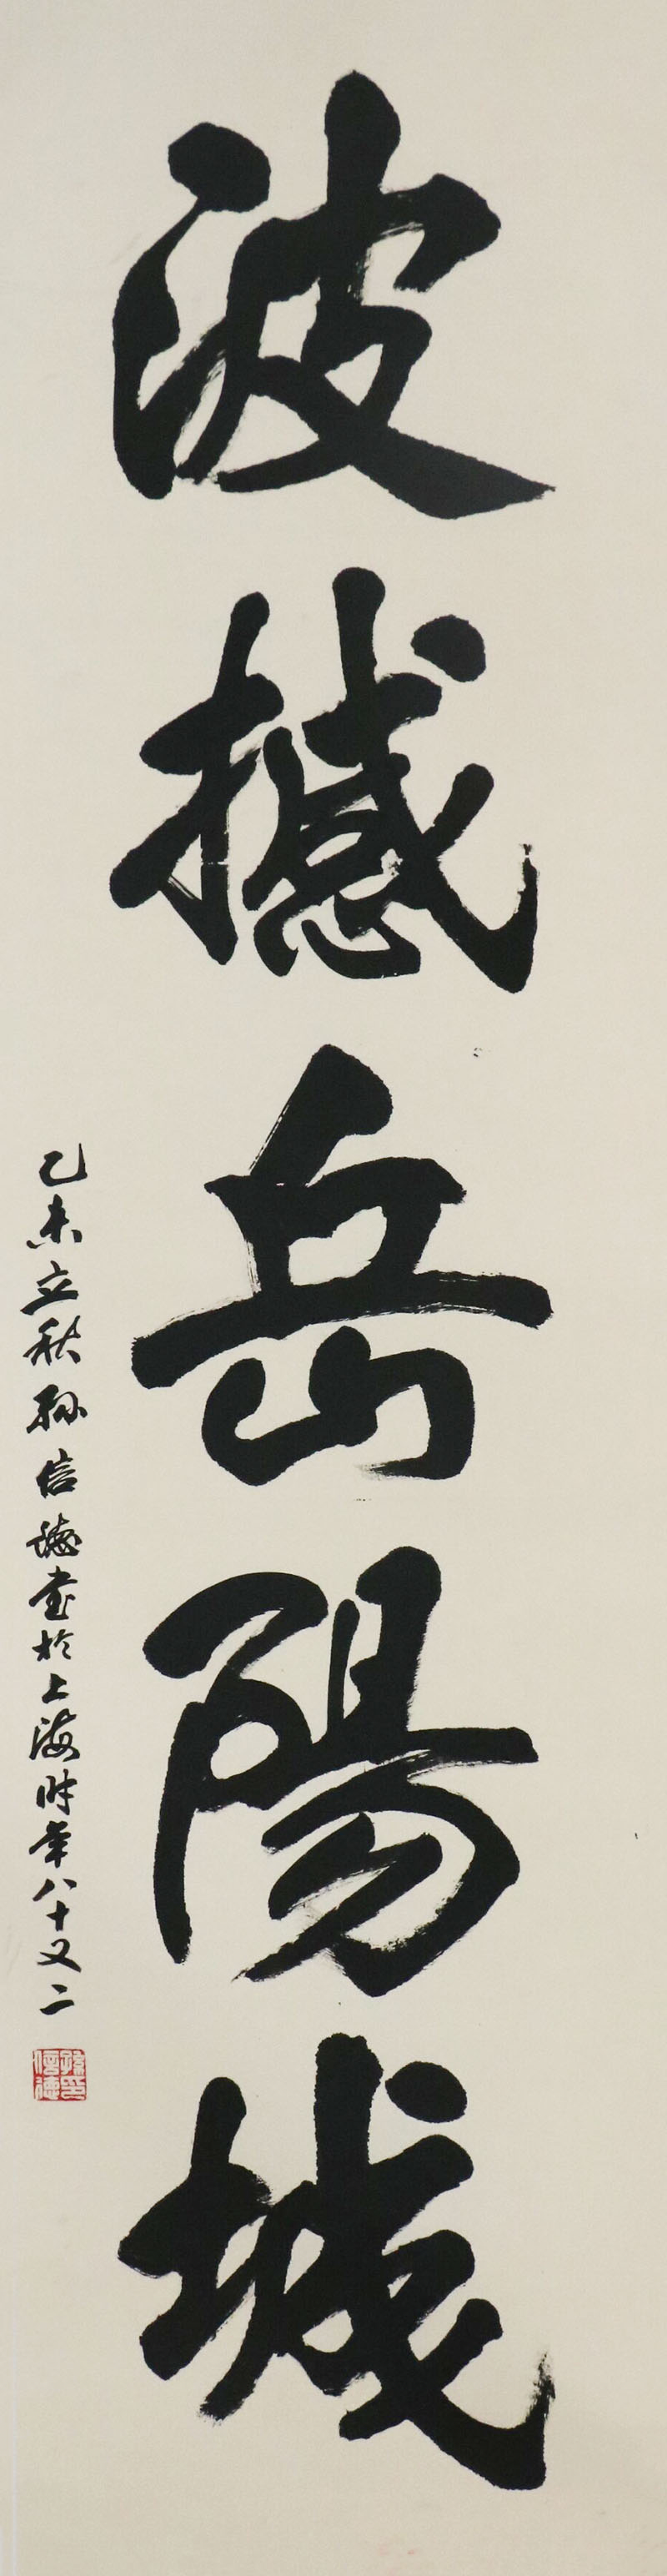 波撼岳陽城
乙未立秋孫信德書於上海時年八十又二
孫信德印